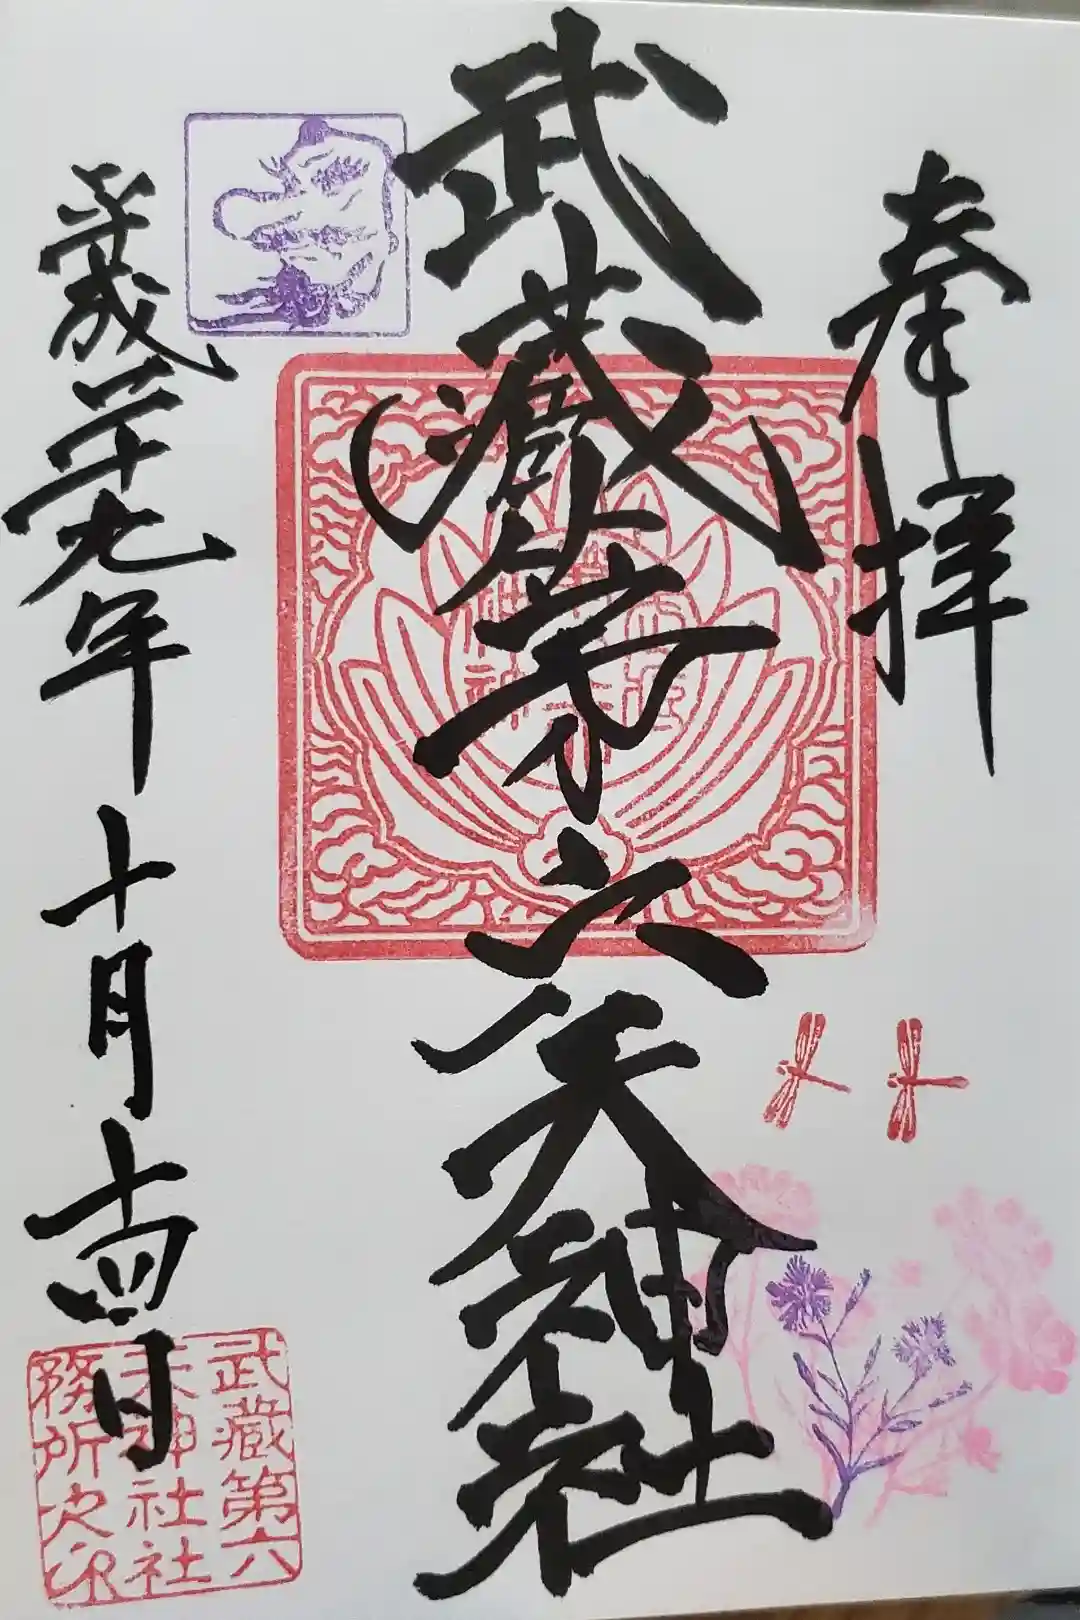 奉拝
武蔵第六天神社
平成二十九年十月十四日
武蔵第六
天神社社
務所之印